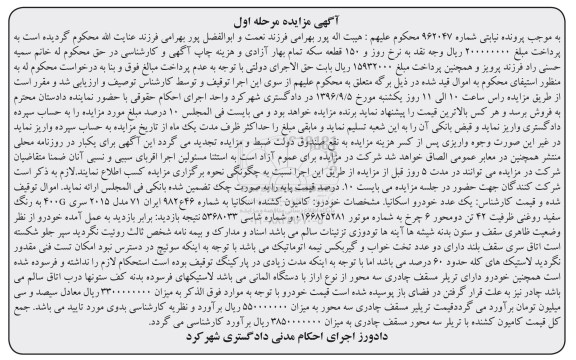 آگهی مزایده مرحله اول
به موجب پرونده نیابتی شماره ۹۶۲۰۴۷ محکوم علیهم : هیبت اله پور بهرامی فرزند نعمت و ابوالفضل پور بهرامی فرزند عنایت الله محکوم گردیده است به
پرداخت مبلغ ۲۰۰۰۰۰۰۰۰ ریال وجه نقد به نرخ روز و ۱۵۰ قطعه سکه تمام بهار آزادی و هزینه چاپ آگهی و کارشناسی در حق محکوم له خانم سمیه
حسنی راد فرزند پرویز و همچنین پرداخت مبلغ ۱۵۹۳۲۰۰۰ ریال بابت حق الاجرای دولتی با توجه به عدم پرداخت مبالغ فوق و بنا به درخواست محکوم له به
منظور استیفای محکوم به اموال قید شده در ذیل برگه متعلق به محکوم علیهم از سوی این اجرا توقیف و توسط کارشناس توصیف و ارزیابی شد و مقرر است
از طریق مزایده راس ساعت ۱۰ الی ۱۱ روز یکشنبه مورخ ۱۳۹۶/۹/۵ در دادگستری شهرکرد واحد اجرای احکام حقوقی با حضور نماینده دادستان محترم
به فروش برسد و هر کس بالاترین قیمت را پیشنهاد نماید برنده مزایده خواهد بود و می بایست فی المجلس ۱۰ درصد مبلغ مورد مزایده را به حساب سپرده
دادگستری واریز نماید و قبض بانکی آن را به این شعبه تسلیم نماید و مابقی مبلغ را حداکثر ظرف مدت یک ماه از تاریخ مزایده به حساب سپرده واریز نماید
در غیر این صورت وجوه واریزی پس از کسر هزینه مزایده به نفع صندوق دولت ضبط و مزایده تجدید می گردد این آگهی برای یکبار در روزنامه محلی
منتشر همچنین در معابر عمومی الصاق خواهد شد شرکت در مزایده برای عموم آزاد است به استثنا مسئولین اجرا اقربای سببی و نسبی آنان ضمنا متقاضیان
شرکت در مزایده می توانند در مدت ۵ روز قبل از مزایده از طریق این اجرا نسبت به چگونگی نحوه برگزاری مزایده کسب اطلاع نمایند.لازم به ذکر است
شرکت کنندگان جهت حضور در جلسه مزایده می بایست ۱۰ درصد قیمت پایه را به صورت چک تضمین شده بانکی فی المجلس ارائه نماید. اموال توقیف
شده و قیمت کارشناس: یک عدد خودرو اسکانیا. مشخصات خودرو: کامیون کشنده اسکانیا به شماره ۹۸۲ع۴۶ ایران ۷۱ مدل ۲۰۱۵ سری ۴۰۰G به رنگ
سفید روغنی ظرفیت ۴۲ تن دومحور ۶ چرخ به شماره موتور ۰۱۶۶۸۴۵۲۸۱ و شماره شاسی ۵۳۶۸۰۳۳ نتیجه بازدید: برابر بازدید به عمل آمده خودرو از نظر
وضعیت ظاهری سقف و ستون بدنه شیشه ها آینه ها تودوزی تزئینات سالم می باشد اسناد و مدارک و بیمه نامه شخص ثالث روئیت نگردید سپر جلو شکسته
است اتاق سری سقف بلند دارای دو عدد تخت خواب و گیربکس نیمه اتوماتیک می باشد با توجه به اینکه سوئیچ در دسترس نبود امکان تست فنی مقدور
نگردید لاستیک های کله حدود ۶۰ درصد می باشد اما با توجه به اینکه مدت زیادی در پارکینگ توقیف بوده است استحکام لازم را نداشته و فرسوده شده
است همچنین خودرو دارای تریلر مسقف چادری سه محور از نوع اراز با دستگاه المانی می باشد لاستیکهای فرسوده بدنه کف ستونها درب اتاق سالم می
باشد چادر نیز به علت قرار گرفتن در فضای باز پوسیده شده است قیمت خودرو با توجه به موارد فوق الذکر به میزان ۳۳۰۰۰۰۰۰۰۰ ریال معادل سیصد و سی
میلیون تومان برآورد می گرددقیمت تریلیر مسقف چادری سه محور به میزان ۵۵۰۰۰۰۰۰۰ ریال برآورد و نظریه کارشناسی بدوی مورد تایید می باشد. جمع
کل قیمت کامیون کشنده با تریلر سه محور مسقف چادری به میزان ۳۸۵۰۰۰۰۰۰۰ ریال برآورد کارشناسی می گردد.
دادورز اجرای احکام مدنی دادگستری شهر کرد